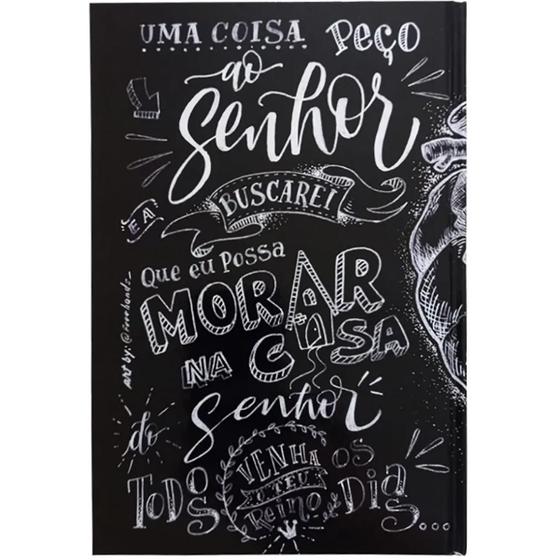 UMA COISA PEÇO
ao
Senhor
E A BUSCAREI
Que eu Possa
MORAR
NA CASA
do Senhor
TODOS OS Dias...
VENHA
O TEU
Reino
art by: @freehands_